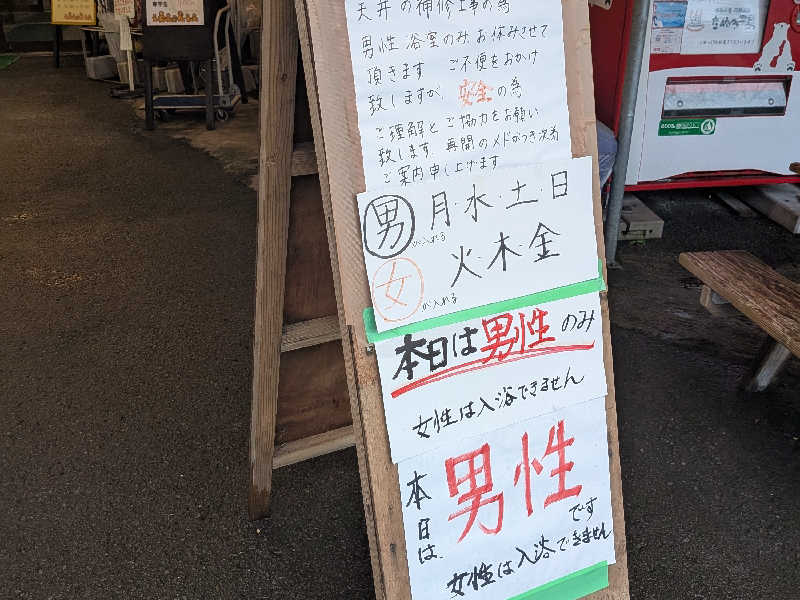 天井の補修工事の為
男性浴室のみお休みさせて
頂きます ご不便をおかけ
致しますが、安全の為
ご理解とご協力をお願い
致します 再開のメドがつき次第
ご案内申し上げます
男が入れる 月・水・土・日
女が入れる 火・木・金
本日は男性のみ
女性は入浴できません
本日は、男性です
女性は入浴できません